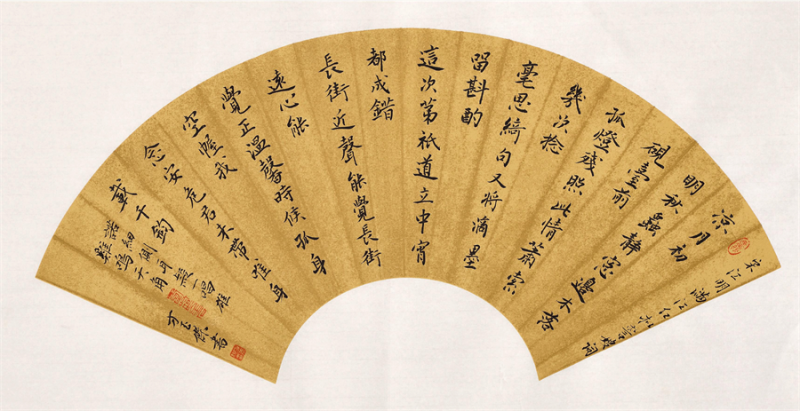 涼月初
明秋蟲靜窓邊木落
硯臺前
孤燈殘照此情蕭索
幾次捻
毫思綺句又將滴墨
留斟酌
這次第祇道立中宵
都成錯
長街近聲能覺長街
遠心能
覺正溫馨時候孤身
空幄我
念安危君未帶唯身
載千鈞
諾